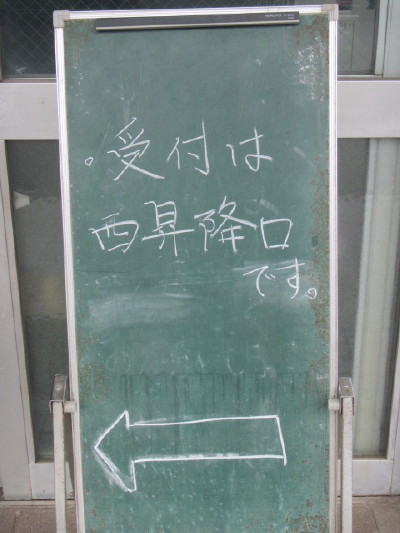 。受付は
西昇降口
です。